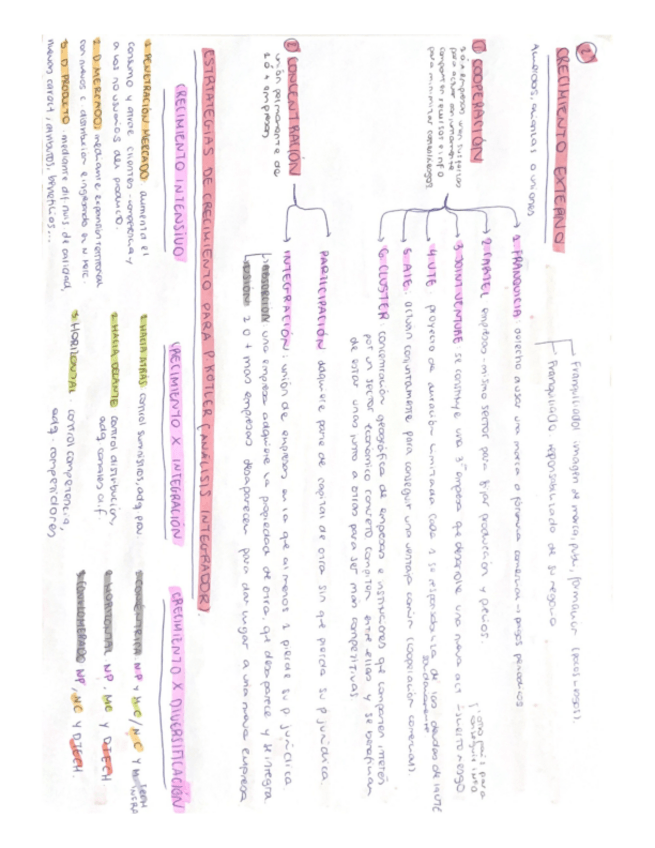 ②
CRECIMIENTO EXTERNO
Alianzas o uniones
① COOPERACIÓN
para minimizar
1 FRANQUICIA derecho a usar una marca o fórmula comercial → pagos periódicos
Franquiciador imagen de marca, formación
Franquiciado responsabilizado de su negocio
2 CARTEL empresas mismo sector para fijar producción y precios.
3 JOINT VENTURE se constituye una 3ª empresa que desarrolle una nueva act
4 UTE proyecto de duración limitada cada 1 se responsabiliza de las deudas de la UTE
solidariamente
5 AIE actúan conjuntamente para conseguir una ventaja común (cooperación comercial)
6 CLUSTER concentración geográfica de empresas e instituciones que comparten interés
por un sector económico concreto compiten entre ellas y se benefician
de estar unas junto a otras para ser más competitivas
② CONCENTRACIÓN
unión permanente de
2 ó + empresas
PARTICIPACIÓN adquiere parte de capital de otra sin que pierda su p jurídica
INTEGRACIÓN: unión de empresas en la que al menos 1 pierde su p jurídica
ABSORCIÓN una empresa adquiere la propiedad de otra, que desaparece y se integra
FUSIÓN 2 o + mas empresas desaparecen para dar lugar a una nueva empresa
ESTRATEGIAS DE CRECIMIENTO PARA P. KOTLER (ANÁLISIS INTEGRADOR)
CRECIMIENTO INTENSIVO
1 PENETRACIÓN MERCADO aumenta el
consumo y atrae clientes competencia y
a los no usuarios del producto.
2 D MERCADO, mediante expansión territorial
con nuevos c distribución e ingresando en N merc.
3 D PRODUCTO mediante dif nivs de calidad,
nuevas caract, beneficios...
CRECIMIENTO X INTEGRACIÓN
1 HACIA ATRÁS control suministros, adq prov
2 HACIA DELANTE control distribución,
adq canales d.f.
3 HORIZONTAL control competencia,
adq. competidores
CRECIMIENTO X DIVERSIFICACIÓN
1 CONCÉNTRICA NP y MC/NC Y
2 HORIZONTAL NP, MC Y D.TECH
3 CONGLOMERADO NP, NC Y D.TECH.